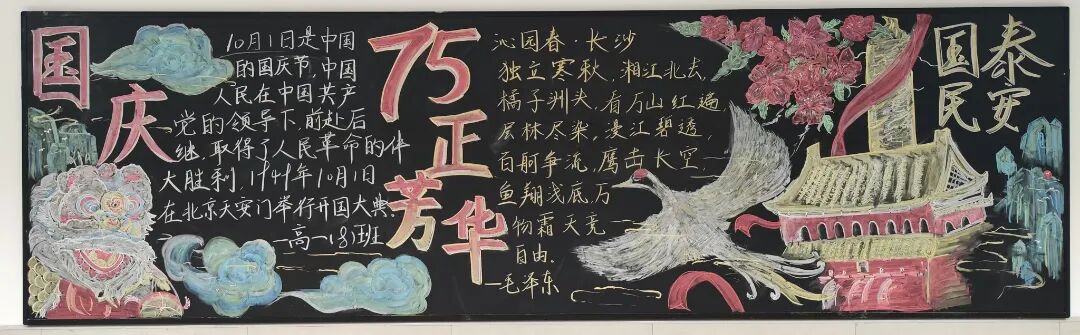 国庆
10月1日是中国
的国庆节,中国
人民在中国共产
党的领导下,前赴后
继,取得了人民革命的伟
大胜利,1949年10月1日
在北京天安门举行开国大典.
—高一18班
75正芳华
沁园春·长沙
独立寒秋,湘江北去,
橘子洲头,看万山红遍
层林尽染,漫江碧透,
百舸争流,鹰击长空
鱼翔浅底,万
物霜天竞
自由.
—毛泽东
国泰
民安